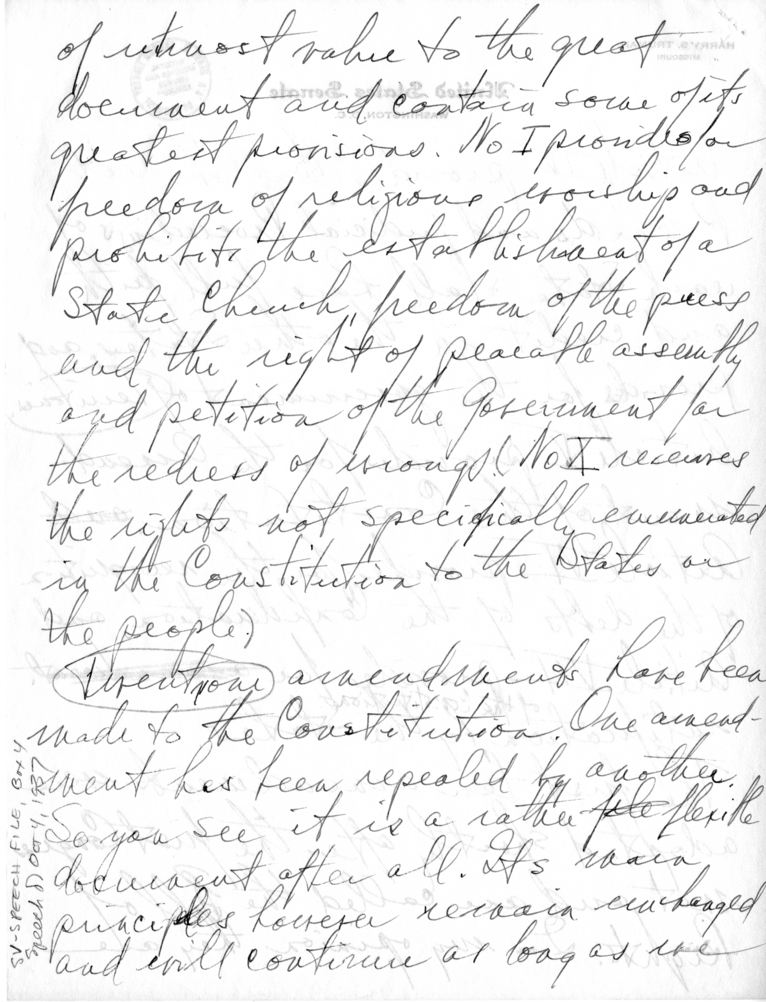 of utmost value to the great
document and contain some of its
greatest provisions. No I provides for
freedom of religious worship and
prohibits the establishment of a
State Church, freedom of the press
and the right of peacable assembly
and petition of the Government for
the redress of wrongs! (No X reserves
the rights not specifically enumerated
in the Constitution to the States or
the people.)
Twenty one amendments have been
made to the Constitution. One amend-
ment has been repealed by another.
So you see it is a rather fle flexible
document after all. Its main
principles however remain unchanged
and will continue as long as we
SV-SPEECH FILE, Box 4
Speech 8, Oct 4, 1937
HARRY S. TRUMAN
MISSOURI
United States Senate
WASHINGTON, D.C.